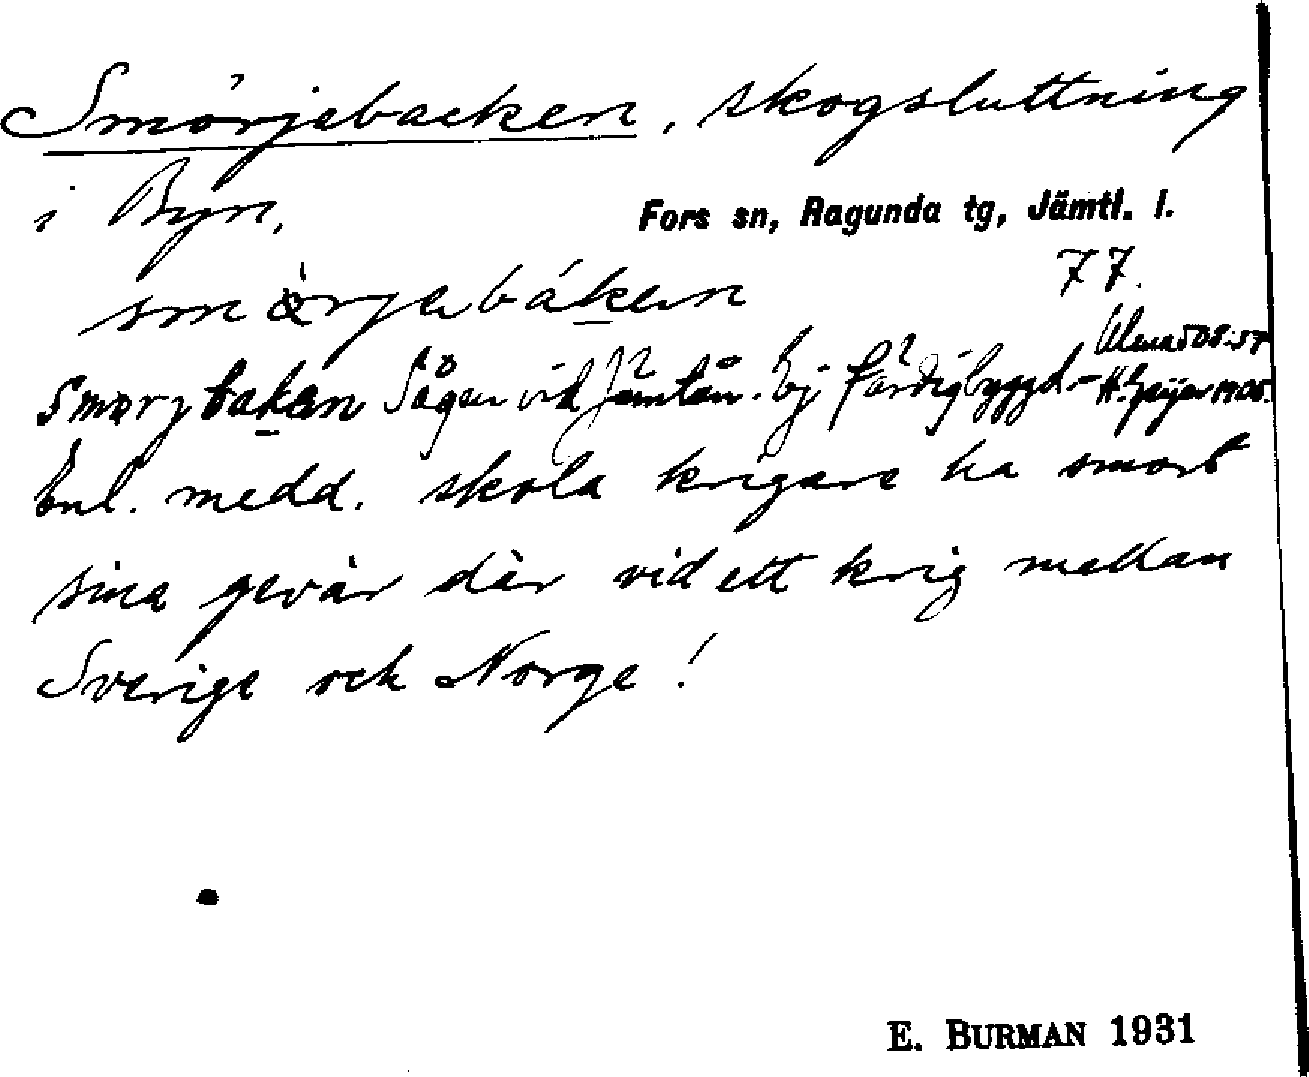 Smörjebacken, skogsluttning
i Byn,
Fors sn, Ragunda tg, Jämtl. l.
77.
smörjebákan
smörjbakan Sågen vid Jämtån. Ej färdigbyggd - H. Geijer 1908.
Enl. medd. skola krigare ha smort
sina gevär där vid ett krig mellan
Sverige och Norge!
E. BURMAN 1931